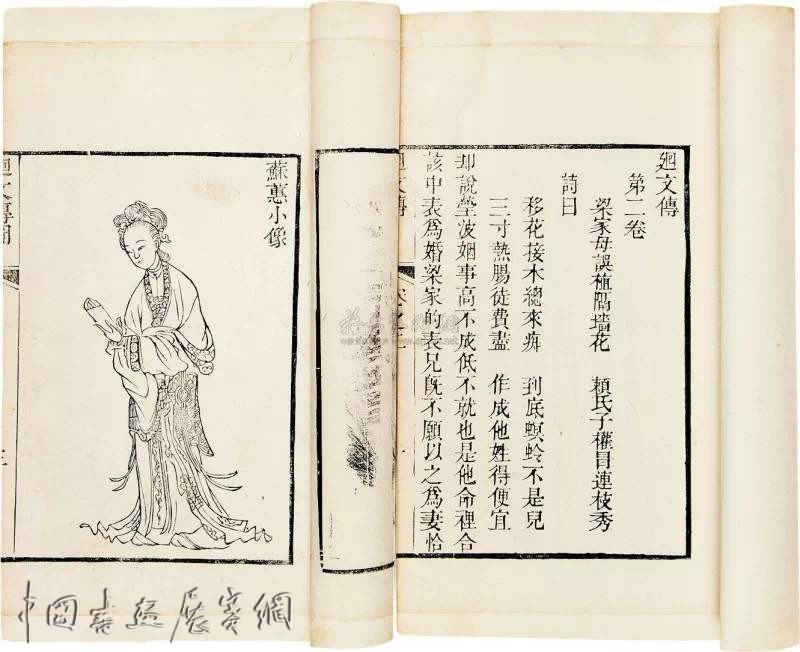 迴文傳
第二卷
梁家母誤植隔墻花　賴氏子權冒連枝秀
詩曰
移花接木總來痴　到底螟蛉不是兒
三寸熱腸徒費盡　作成他姓得便宜
却說瑩波姻事高不成低不就也是他命裡合
該中表爲婚梁家的表兄既不願以之爲妻恰
迴文傳
蘇蕙小像
中國書畫展賽網